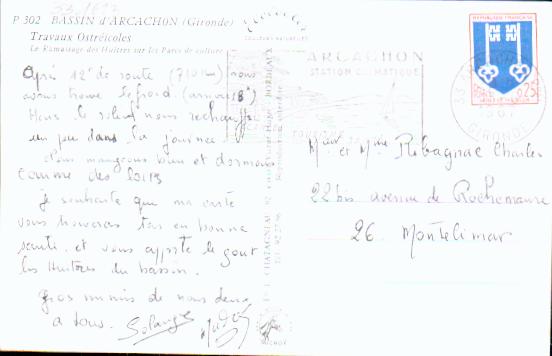 33/622
P 302 BASSIN d'ARCACHON (Gironde)
Travaux Ostréicoles
Le Ramassage des Huîtres sur les Parcs de culture
Après 12h de route (710 km) nous
avons trouvé le froid (arrivée 8°)
Mais le soleil nous réchauffe
un peu dans la journée.
Nous mangeons bien et dormons
comme des loirs
je souhaite que ma carte
vous trouvera tous en bonne
santé et vous apporte le gout
les Huitres du bassin.
Gros mimis de nous deux
a tous. Solange
ARCACHON
STATION CLIMATIQUE
REPUBLIQUE FRANÇAISE
0,25
POSTES
GIRONDE
Meur et Mme Ribagnac Charles
22 bis avenue de Rochemaure
26 Montélimar